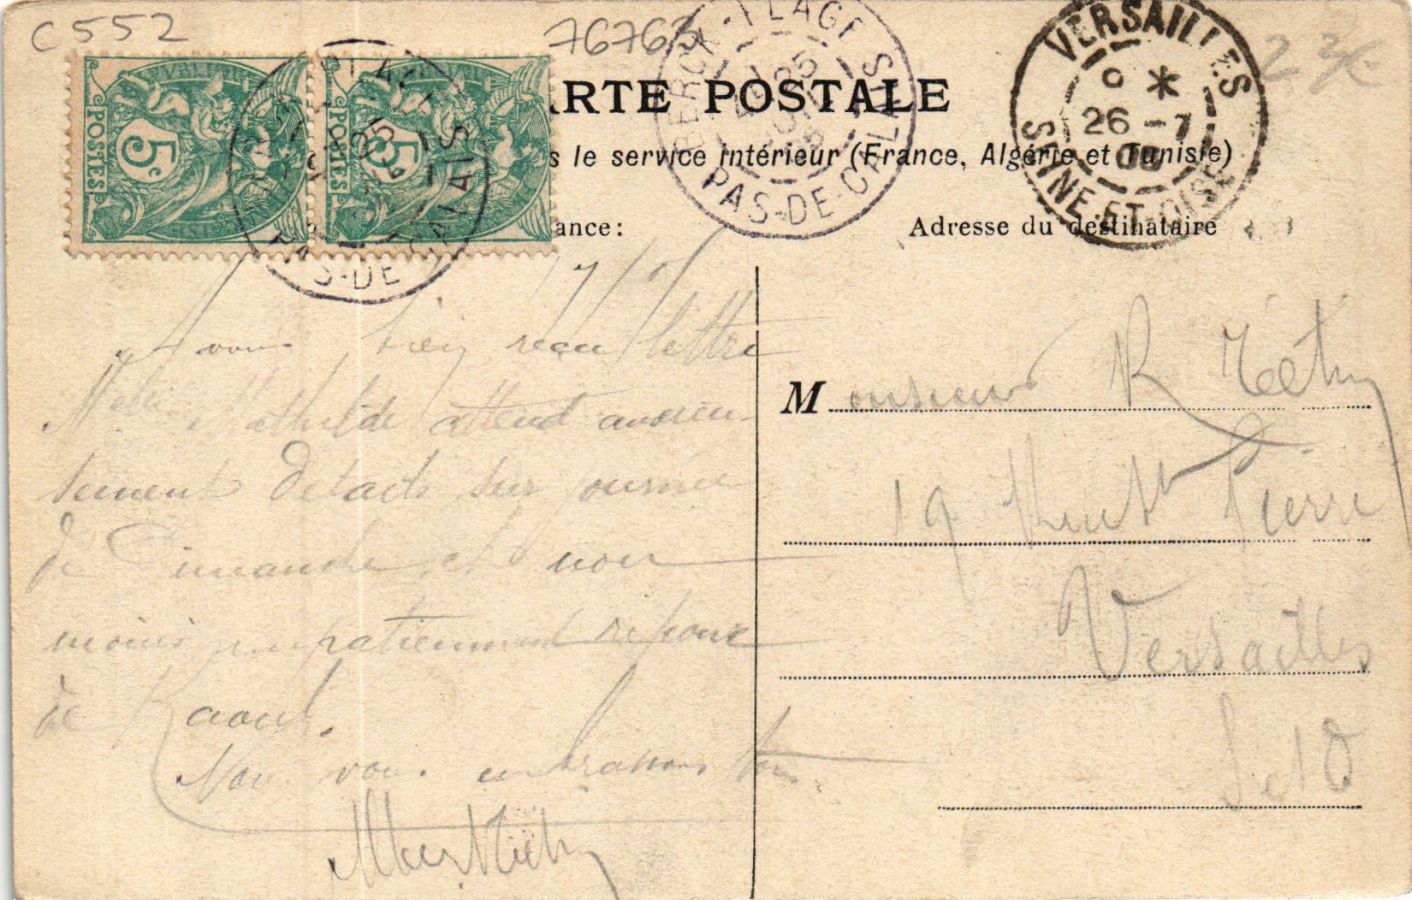 C552
76763
CARTE POSTALE
s le service intérieur (France, Algérie et Tunisie)
ance:
Adresse du destinataire
POSTES
5c
POSTES
5c
PAS-DE-CALAIS
BERCK-PLAGE
PAS-DE-CALAIS
VERSAILLES
26 -7
SEINE-ET-OISE
Avons bien reçu lettre
Mathilde attend anxieu-
sement détails sur journée
de Dimanche et non
moins impatiemment réponse
de Raoul.
Nous vous embrassons tous
Monsieur R
19 Pierre
Versailles
S et O